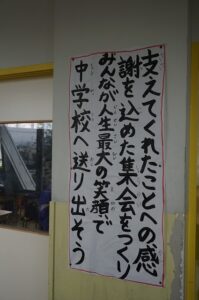 支えてくれたことへの感
謝を込めた集会をつくり
みんなが人生最大の笑顔で
中学校へ送り出そう